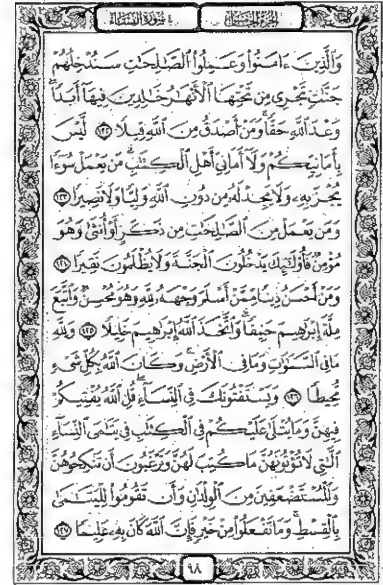 الجزء الخامس سورة النساء
وَالَّذِينَ ءَامَنُوا وَعَمِلُوا الصَّٰلِحَٰتِ سَنُدْخِلُهُمْ
جَنَّٰتٍ تَجْرِى مِن تَحْتِهَا الْأَنْهَٰرُ خَٰلِدِينَ فِيهَا أَبَدًا
وَعْدَ اللَّهِ حَقًّا وَمَنْ أَصْدَقُ مِنَ اللَّهِ قِيلًا ١٢٢ لَّيْسَ
بِأَمَانِيِّكُمْ وَلَا أَمَانِىِّ أَهْلِ الْكِتَٰبِ مَن يَعْمَلْ سُوٓءًا
يُجْزَ بِهِۦ وَلَا يَجِدْ لَهُۥ مِن دُونِ اللَّهِ وَلِيًّا وَلَا نَصِيرًا ١٢٣
وَمَن يَعْمَلْ مِنَ الصَّٰلِحَٰتِ مِن ذَكَرٍ أَوْ أُنثَىٰ وَهُوَ
مُؤْمِنٌ فَأُولَٰٓئِكَ يَدْخُلُونَ الْجَنَّةَ وَلَا يُظْلَمُونَ نَقِيرًا ١٢٤
وَمَنْ أَحْسَنُ دِينًا مِّمَّنْ أَسْلَمَ وَجْهَهُۥ لِلَّهِ وَهُوَ مُحْسِنٌ وَاتَّبَعَ
مِلَّةَ إِبْرَٰهِيمَ حَنِيفًا وَاتَّخَذَ اللَّهُ إِبْرَٰهِيمَ خَلِيلًا ١٢٥ وَلِلَّهِ
مَا فِى السَّمَٰوَٰتِ وَمَا فِى الْأَرْضِ وَكَانَ اللَّهُ بِكُلِّ شَىْءٍ
مُّحِيطًا ١٢٦ وَيَسْتَفْتُونَكَ فِى النِّسَآءِ قُلِ اللَّهُ يُفْتِيكُمْ
فِيهِنَّ وَمَا يُتْلَىٰ عَلَيْكُمْ فِى الْكِتَٰبِ فِى يَتَٰمَى النِّسَآءِ
الَّٰتِى لَا تُؤْتُونَهُنَّ مَا كُتِبَ لَهُنَّ وَتَرْغَبُونَ أَن تَنكِحُوهُنَّ
وَالْمُسْتَضْعَفِينَ مِنَ الْوِلْدَٰنِ وَأَن تَقُومُوا لِلْيَتَٰمَىٰ
بِالْقِسْطِ وَمَا تَفْعَلُوا مِنْ خَيْرٍ فَإِنَّ اللَّهَ كَانَ بِهِۦ عَلِيمًا ١٢٧
٩٨